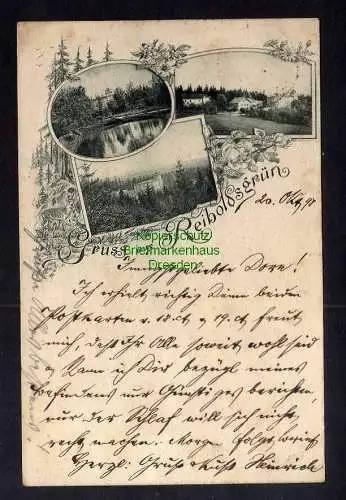 Kopierschutz
Briefmarkenhaus
Dresden
Gruss aus Reiboldsgrün
20. Okt. 97
Innigstgeliebte Dora!
Ich erhielt richtig Deine beiden
Postkarten v. 18. ct & 19. ct freut
mich, dass Ihr Alle soweit wohl seid
& kann ich Dir bezügl. meines
Befindens nur Günstiges berichten,
nur der Schlaf will sich nicht
recht machen. Morgen folgt
Herzl. Gruss Kuss Heinrich